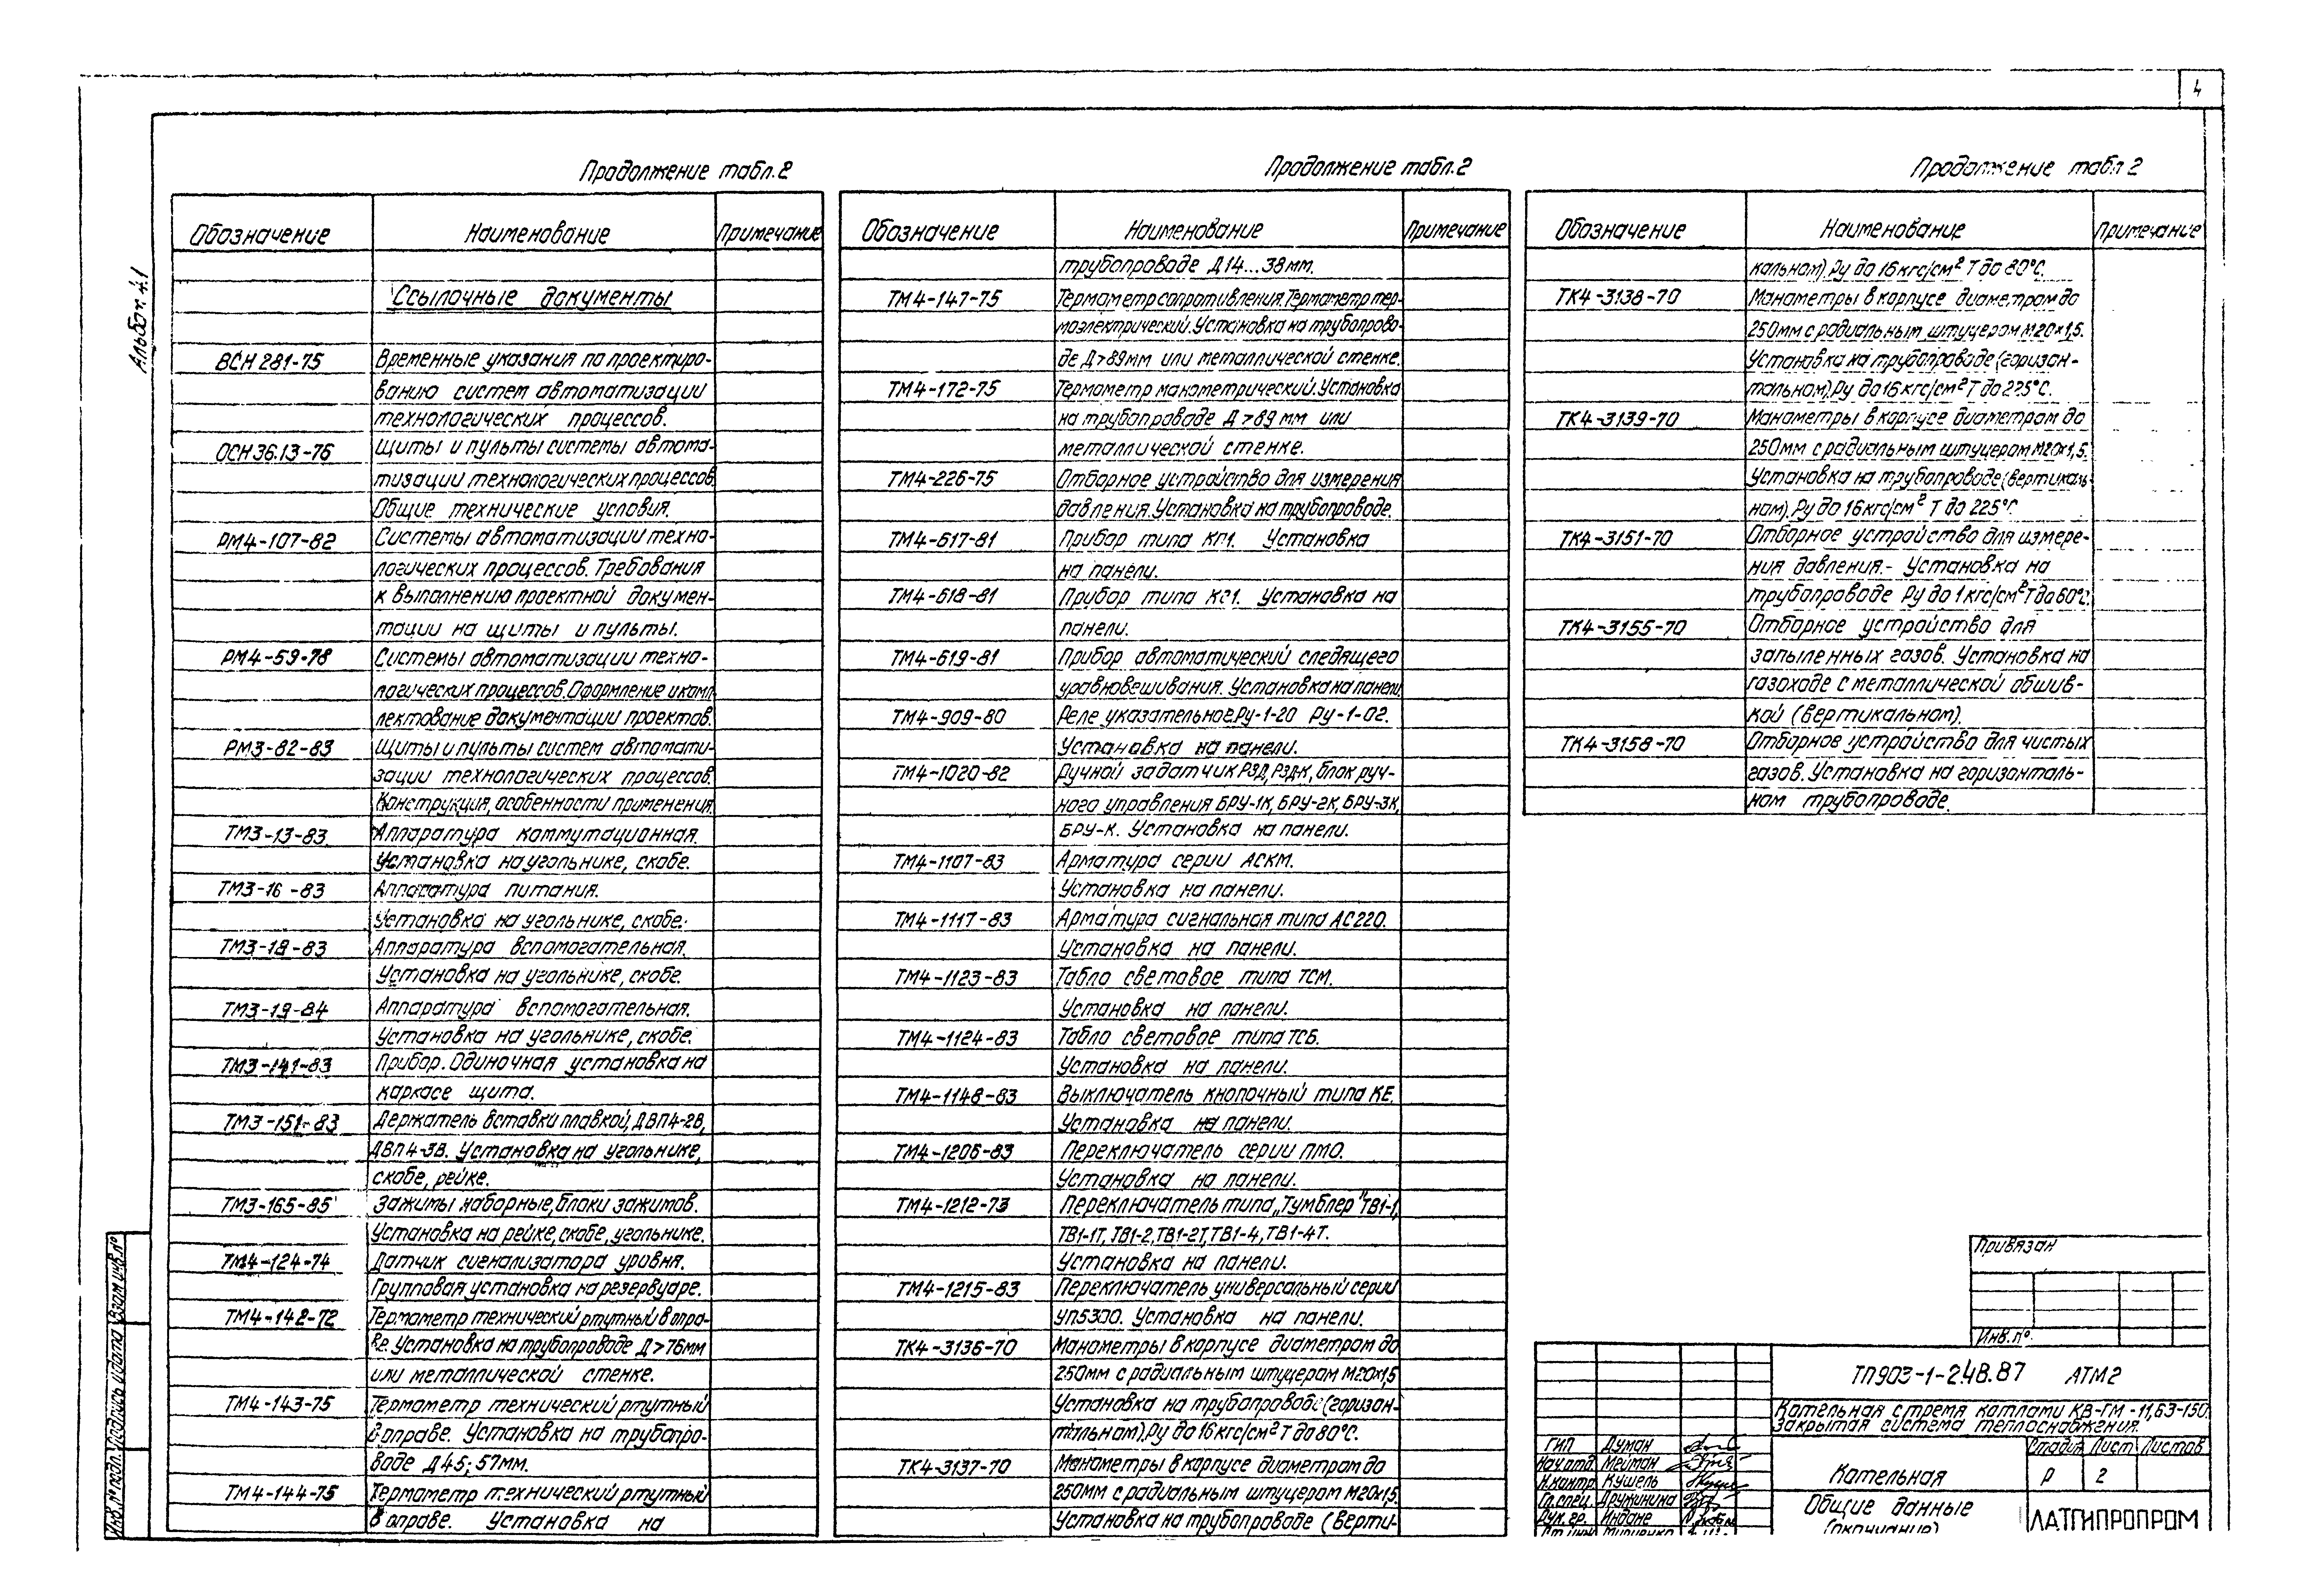 4
Альбом 4.1
Продолжение табл.2
Обозначение Наименование Примечание
Ссылочные документы
ВСН 281-75 Временные указания по проектиро-
ванию систем автоматизации
технологических процессов.
ОСН 36.13-76 Щиты и пульты системы автома-
тизации технологических процессов.
Общие технические условия.
РМ4-107-82 Системы автоматизации техно-
логических процессов. Требования
к выполнению проектной докумен-
тации на щиты и пульты.
РМ4-59-78 Системы автоматизации техно-
логических процессов. Оформление и комп-
лектование документации проектов.
РМ3-82-83 Щиты и пульты систем автомати-
зации технологических процессов.
Конструкция, особенности применения.
ТМ3-13-83 Аппаратура коммутационная.
Установка на угольнике, скобе.
ТМ3-16-83 Аппаратура питания.
Установка на угольнике, скобе.
ТМ3-18-83 Аппаратура вспомогательная.
Установка на угольнике, скобе.
ТМ3-19-84 Аппаратура вспомогательная.
Установка на угольнике, скобе.
ТМ3-141-83 Прибор. Одиночная установка на
каркасе щита.
ТМ3-151-83 Держатель вставки плавкой, ДВП4-2В,
ДВП4-3В. Установка на угольнике,
скобе, рейке.
ТМ3-165-85 Зажимы наборные, блоки зажимов.
Установка на рейке, скобе, угольнике.
ТМ4-124-74 Датчик сигнализатора уровня.
Групповая установка на резервуаре.
ТМ4-142-72 Термометр технический ртутный в опра-
ве. Установка на трубопроводе Д>76мм
или металлической стенке.
ТМ4-143-75 Термометр технический ртутный
в оправе. Установка на трубопро-
воде Д45; 57мм.
ТМ4-144-75 Термометр технический ртутный
в оправе. Установка на
Продолжение табл.2
Обозначение Наименование Примечание
трубопроводе Д14...38мм.
ТМ4-147-75 Термометр сопротивления. Термометр тер-
моэлектрический. Установка на трубопрово-
де Д>89мм или металлической стенке.
ТМ4-172-75 Термометр манометрический. Установка
на трубопроводе Д>89 мм или
металлической стенке.
ТМ4-226-75 Отборное устройство для измерения
давления. Установка на трубопроводе.
ТМ4-617-81 Прибор типа КП1. Установка
на панели.
ТМ4-618-81 Прибор типа КС1. Установка на
панели.
ТМ4-619-81 Прибор автоматический следящего
уравновешивания. Установка на панели.
ТМ4-909-80 Реле указательное Ру-1-20 Ру-1-02.
Установка на панели.
ТМ4-1020-82 Ручной задатчик РЗД, РЗД-К, блок руч-
ного управления БРУ-1К, БРУ-2К, БРУ-3К,
БРУ-К. Установка на панели.
ТМ4-1107-83 Арматура серии АСКМ.
Установка на панели.
ТМ4-1117-83 Арматура сигнальная типа АС220.
Установка на панели.
ТМ4-1123-83 Табло световое типа ТСМ.
Установка на панели.
ТМ4-1124-83 Табло световое типа ТСБ.
Установка на панели.
ТМ4-1148-83 Выключатель кнопочный типа КЕ.
Установка на панели.
ТМ4-1206-83 Переключатель серии ПМО.
Установка на панели.
ТМ4-1212-73 Переключатель типа „Тумблер" ТВ1-1,
ТВ1-1Т, ТВ1-2, ТВ1-2Т, ТВ1-4, ТВ1-4Т.
Установка на панели.
ТМ4-1215-83 Переключатель универсальный серии
УП5300. Установка на панели.
ТК4-3136-70 Манометры в корпусе диаметром до
250мм с радиальным штуцером М20х1,5
Установка на трубопроводе (горизон-
тальном), Ру до 16кгс/см² Т до 80°С.
ТК4-3137-70 Манометры в корпусе диаметром до
250мм с радиальным штуцером М20х1,5.
Установка на трубопроводе (верти-
Продолжение табл 2
Обозначение Наименование Примечание
кальном), Ру до 16кгс/см² Т до 80°С.
ТК4-3138-70 Манометры в корпусе диаметром до
250мм с радиальным штуцером М20х1,5.
Установка на трубопроводе (горизон-
тальном), Ру до 16кгс/см² Т до 225°С.
ТК4-3139-70 Манометры в корпусе диаметром до
250мм с радиальным штуцером М20х1,5.
Установка на трубопроводе (вертикаль-
ном). Ру до 16кгс/см² Т до 225°С
ТК4-3151-70 Отборное устройство для измере-
ния давления.- Установка на
трубопроводе Ру до 1кгс/см² Т до 60°С.
ТК4-3155-70 Отборное устройство для
запыленных газов. Установка на
газоходе с металлической обшив-
кой (вертикальном).
ТК4-3158-70 Отборное устройство для чистых
газов. Установка на горизонталь-
ном трубопроводе.
Привязан
Инв.№.
ТП903-1-248.87 АТМ2
Котельная с тремя котлами КВ-ГМ-11,63-150.
Закрытая система теплоснабжения.
ГИП Думан
Нач.отд. Мейман
Н.контр. Кушель
Гл.спец. Дружинина
Рук.гр. Индане
Котельная
Стадия Лист Листов
Р 2
Общие данные
(окончание)
ЛАТГИПРОПРОМ
Инв.№ подл. Подпись и дата Взам.инв.№